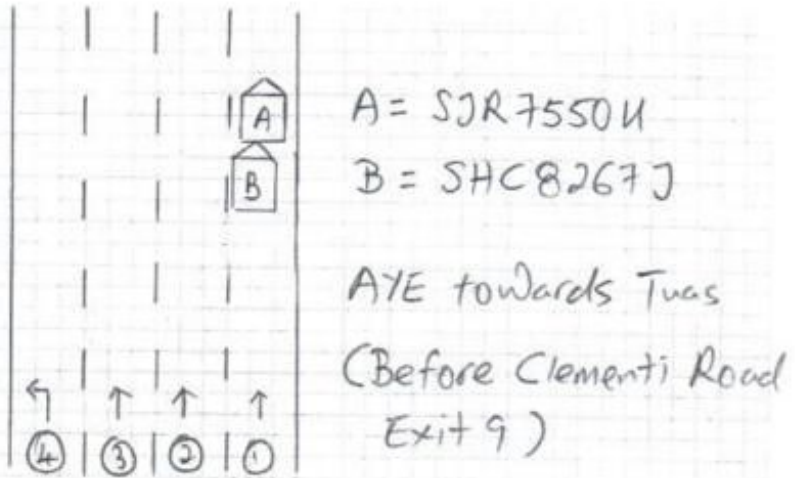 A
A = SJR7550U
B
B = SHC8267J
AYE towards Tuas
(Before Clementi Road
Exit 9)
4 3 2 1